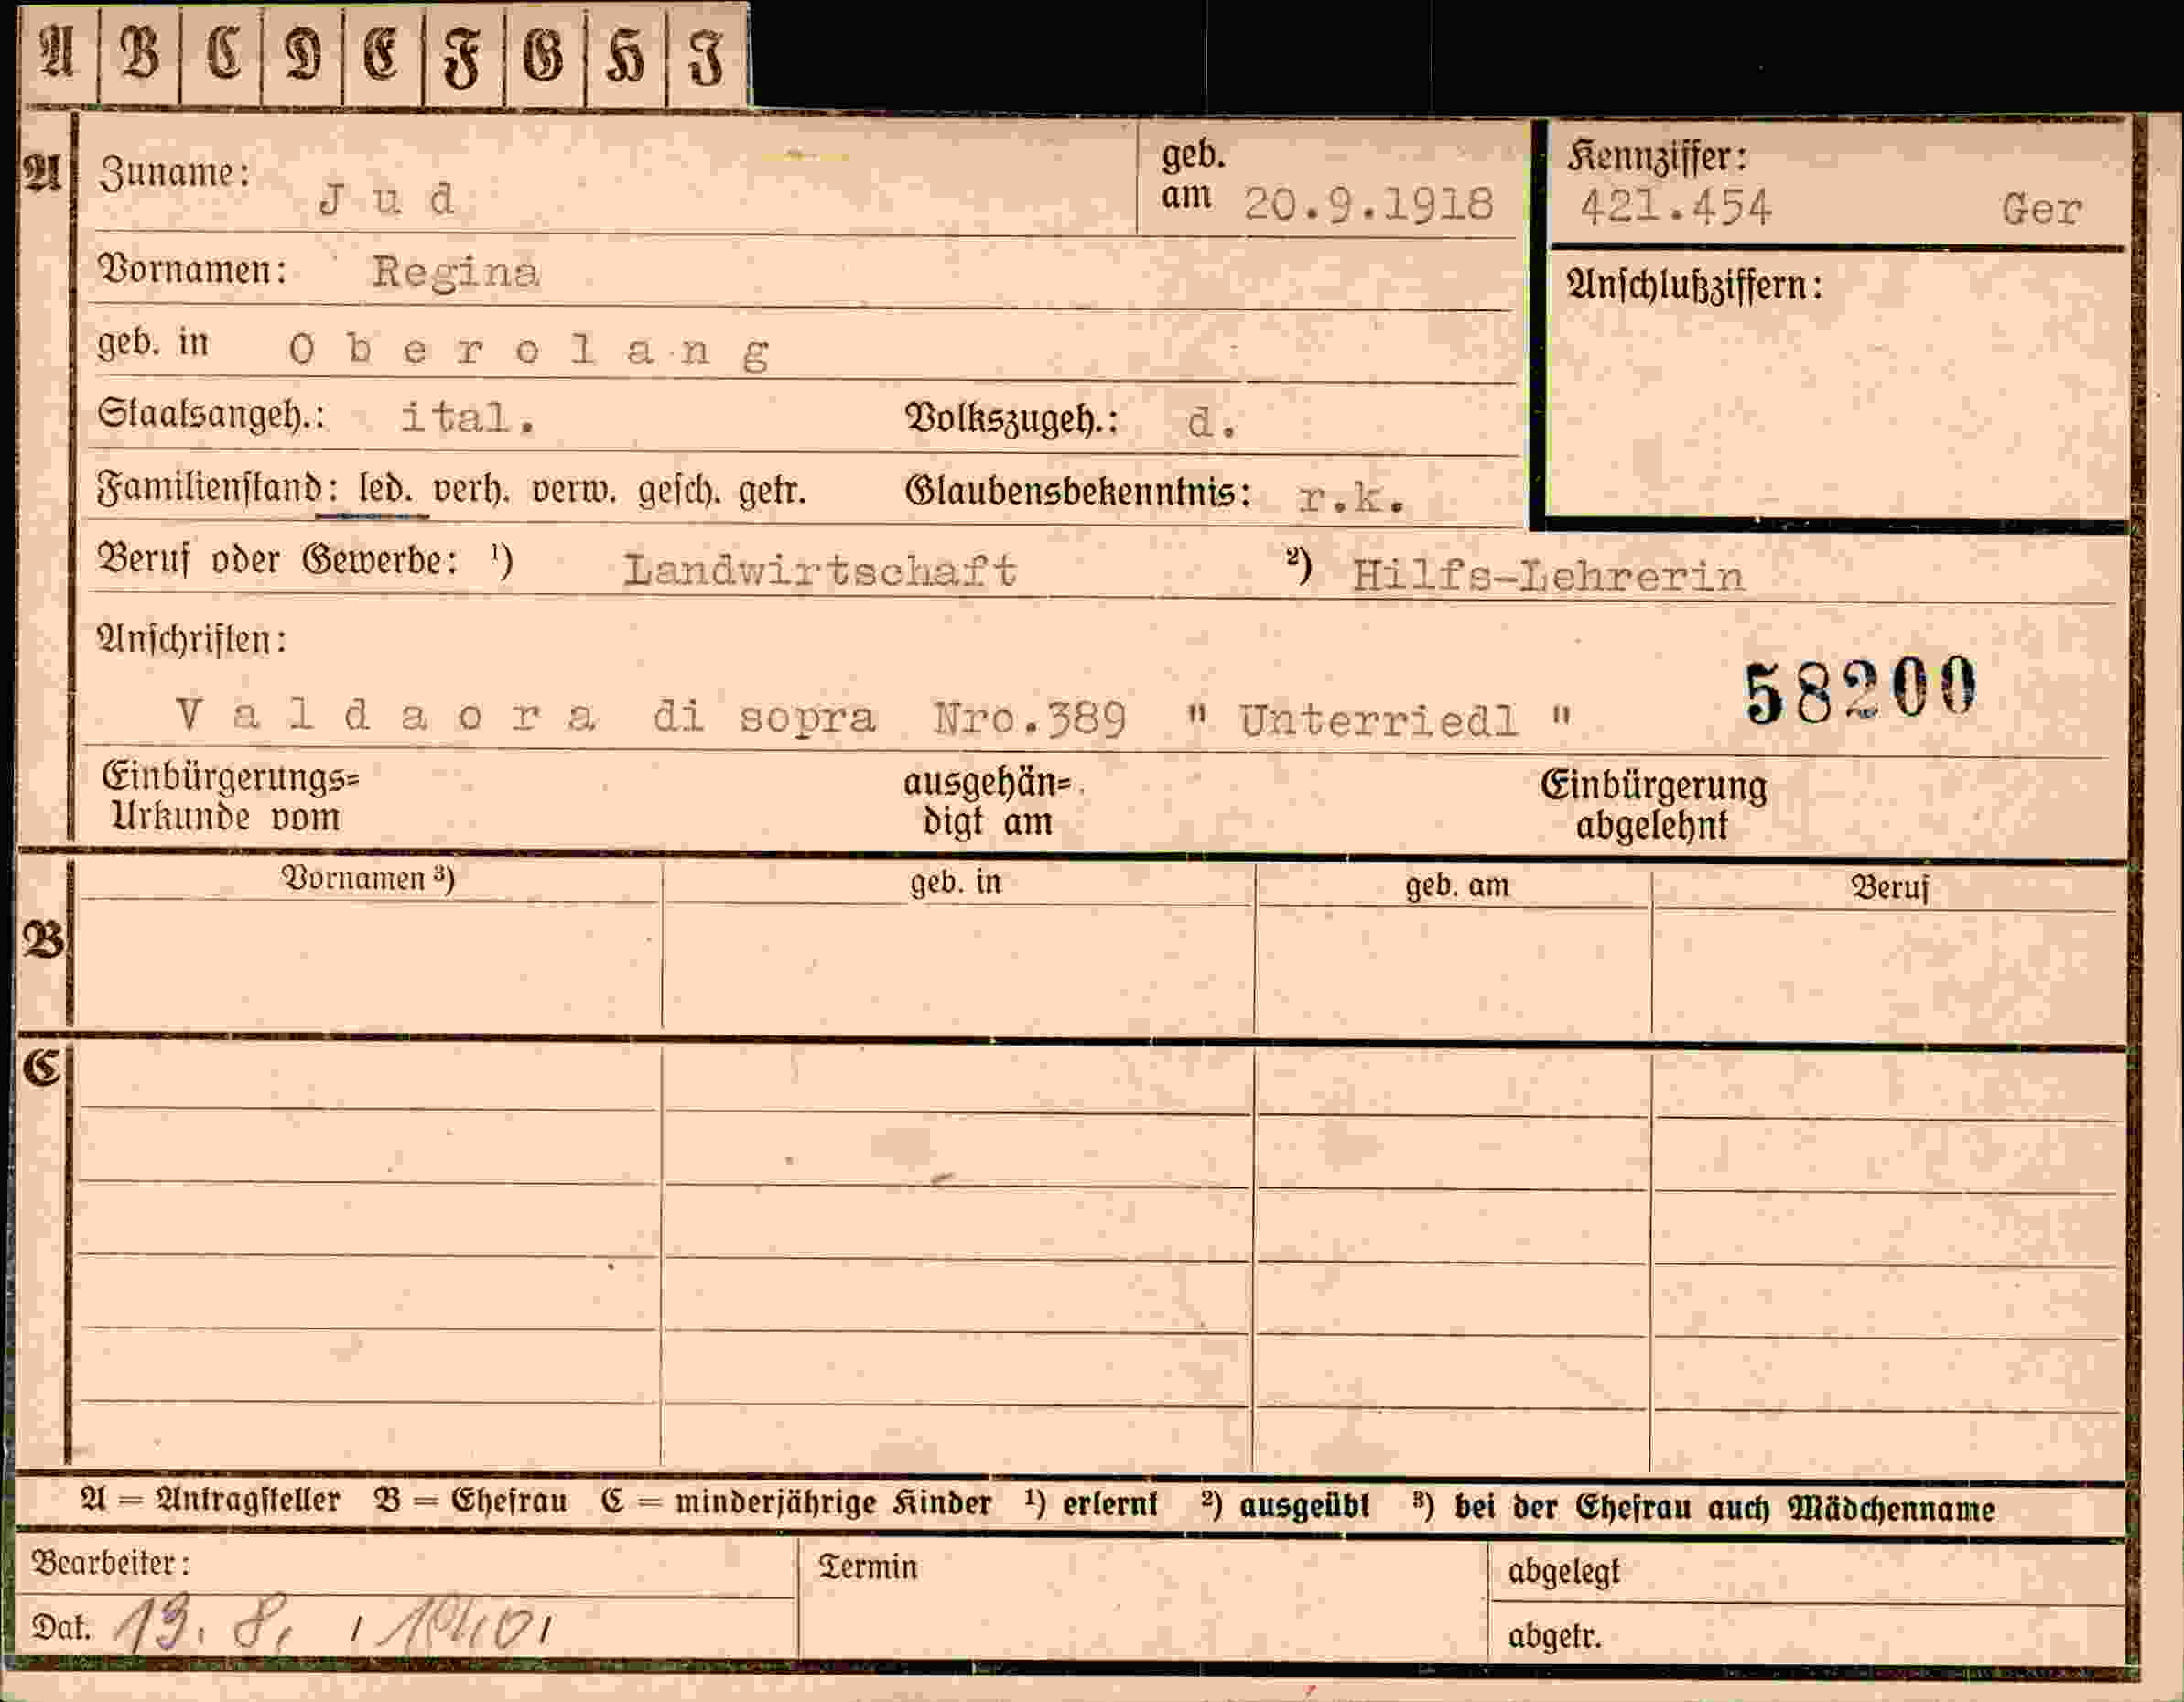 A B C D E F G H I
A Zuname: Jud geb. am 20.9.1918 Kennziffer: 421.454 Ger
Vornamen: Regina Anschlußziffern:
geb. in Oberolang
Staatsangeh.: ital. Volkszugeh.: d.
Familienstand: led. verh. verw. gesch. getr. Glaubensbekenntnis: r.k.
Beruf oder Gewerbe: ¹) Landwirtschaft ²) Hilfs-Lehrerin
Anschriften:
58200
Valdaora di sopra Nro.389 " Unterriedl "
Einbürgerungs= ausgehän= Einbürgerung
Urkunde vom digt am abgelehnt
Vornamen ³) geb. in geb. am Beruf
B
C
A = Antragsteller B = Ehefrau C = minderjährige Kinder ¹) erlernt ²) ausgeübt ³) bei der Ehefrau auch Mädchenname
Bearbeiter: Termin abgelegt
Dat. 19. 8. 1940 abgetr.